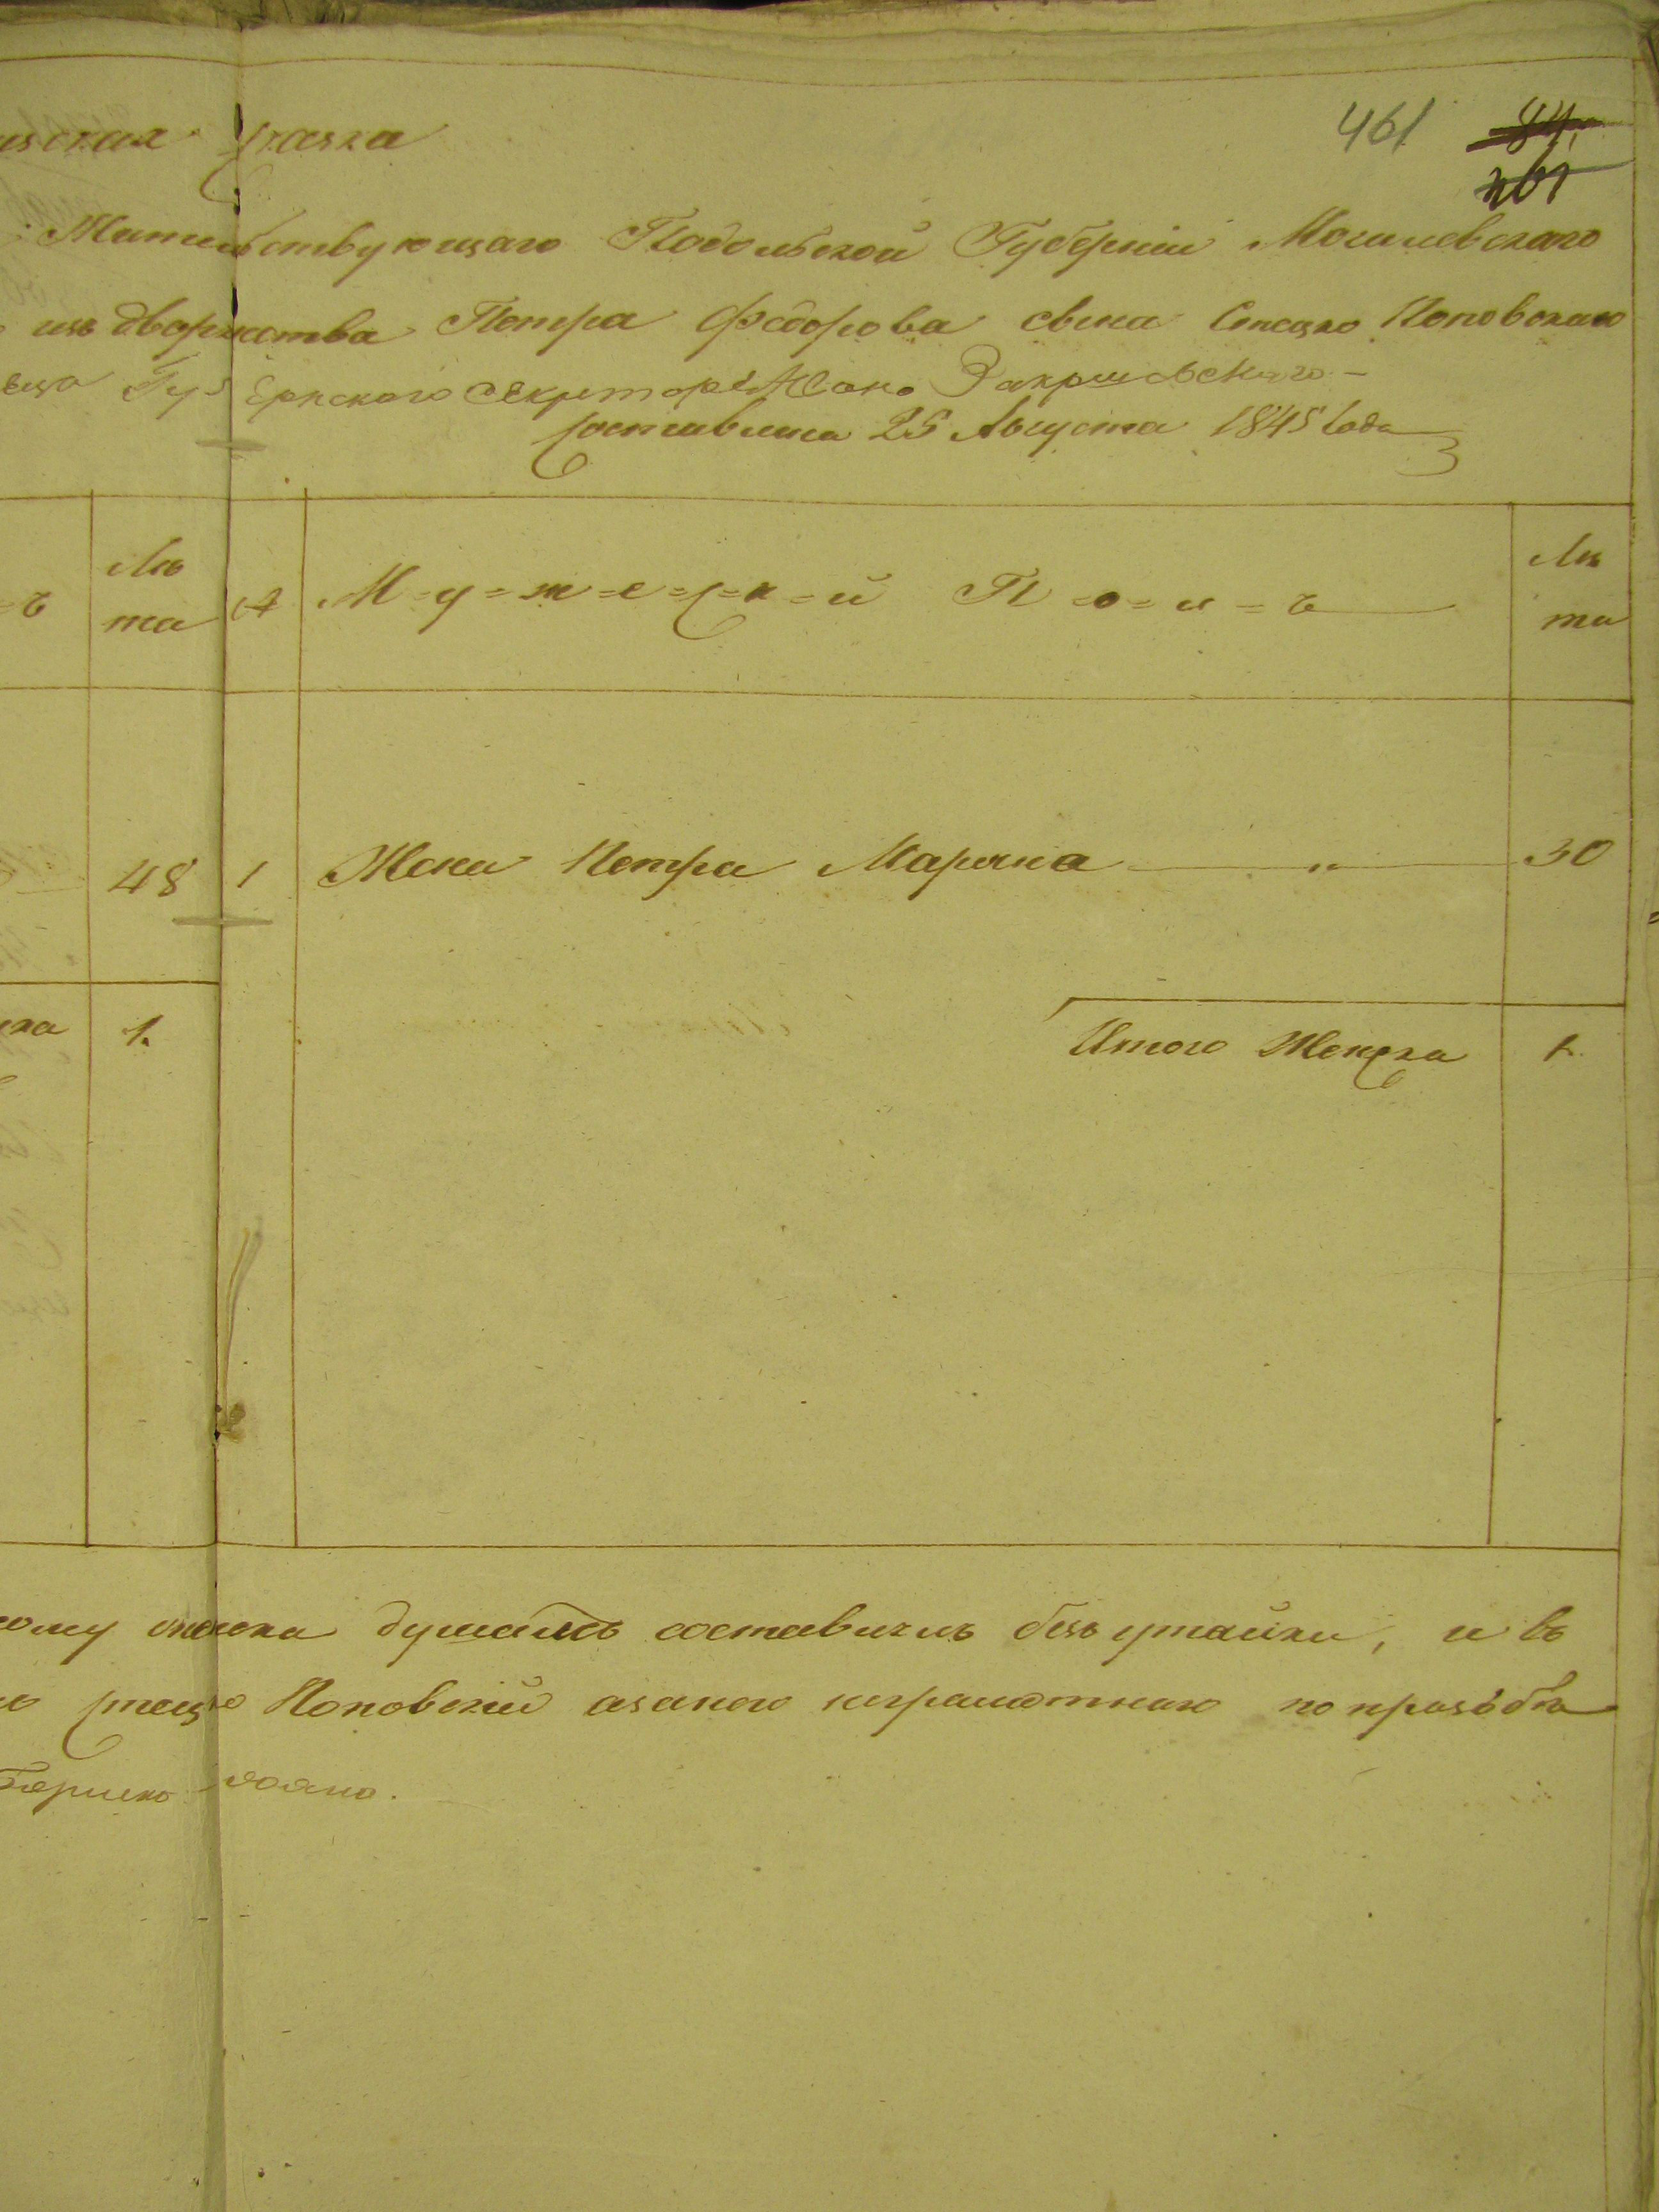 461 84
461
сказка
Жительствующаго Подольской Губерніи Могилевскаго
изъ дворянства Петра Федорова сына Стецко Поповскаго
Губернского Секретаря
составлена 25 Августа 1845 Года
ъ Лѣта № М=у=ж=е=с=к=й П=о=л=ъ Лѣта
48 1 Жена Петра Маряна " 30
ска 1. Итого Женска 1.
душамъ составилъ безъ утайки, и въ
Стецко Поповскій азанего неграмотнаго по прозьбѣ